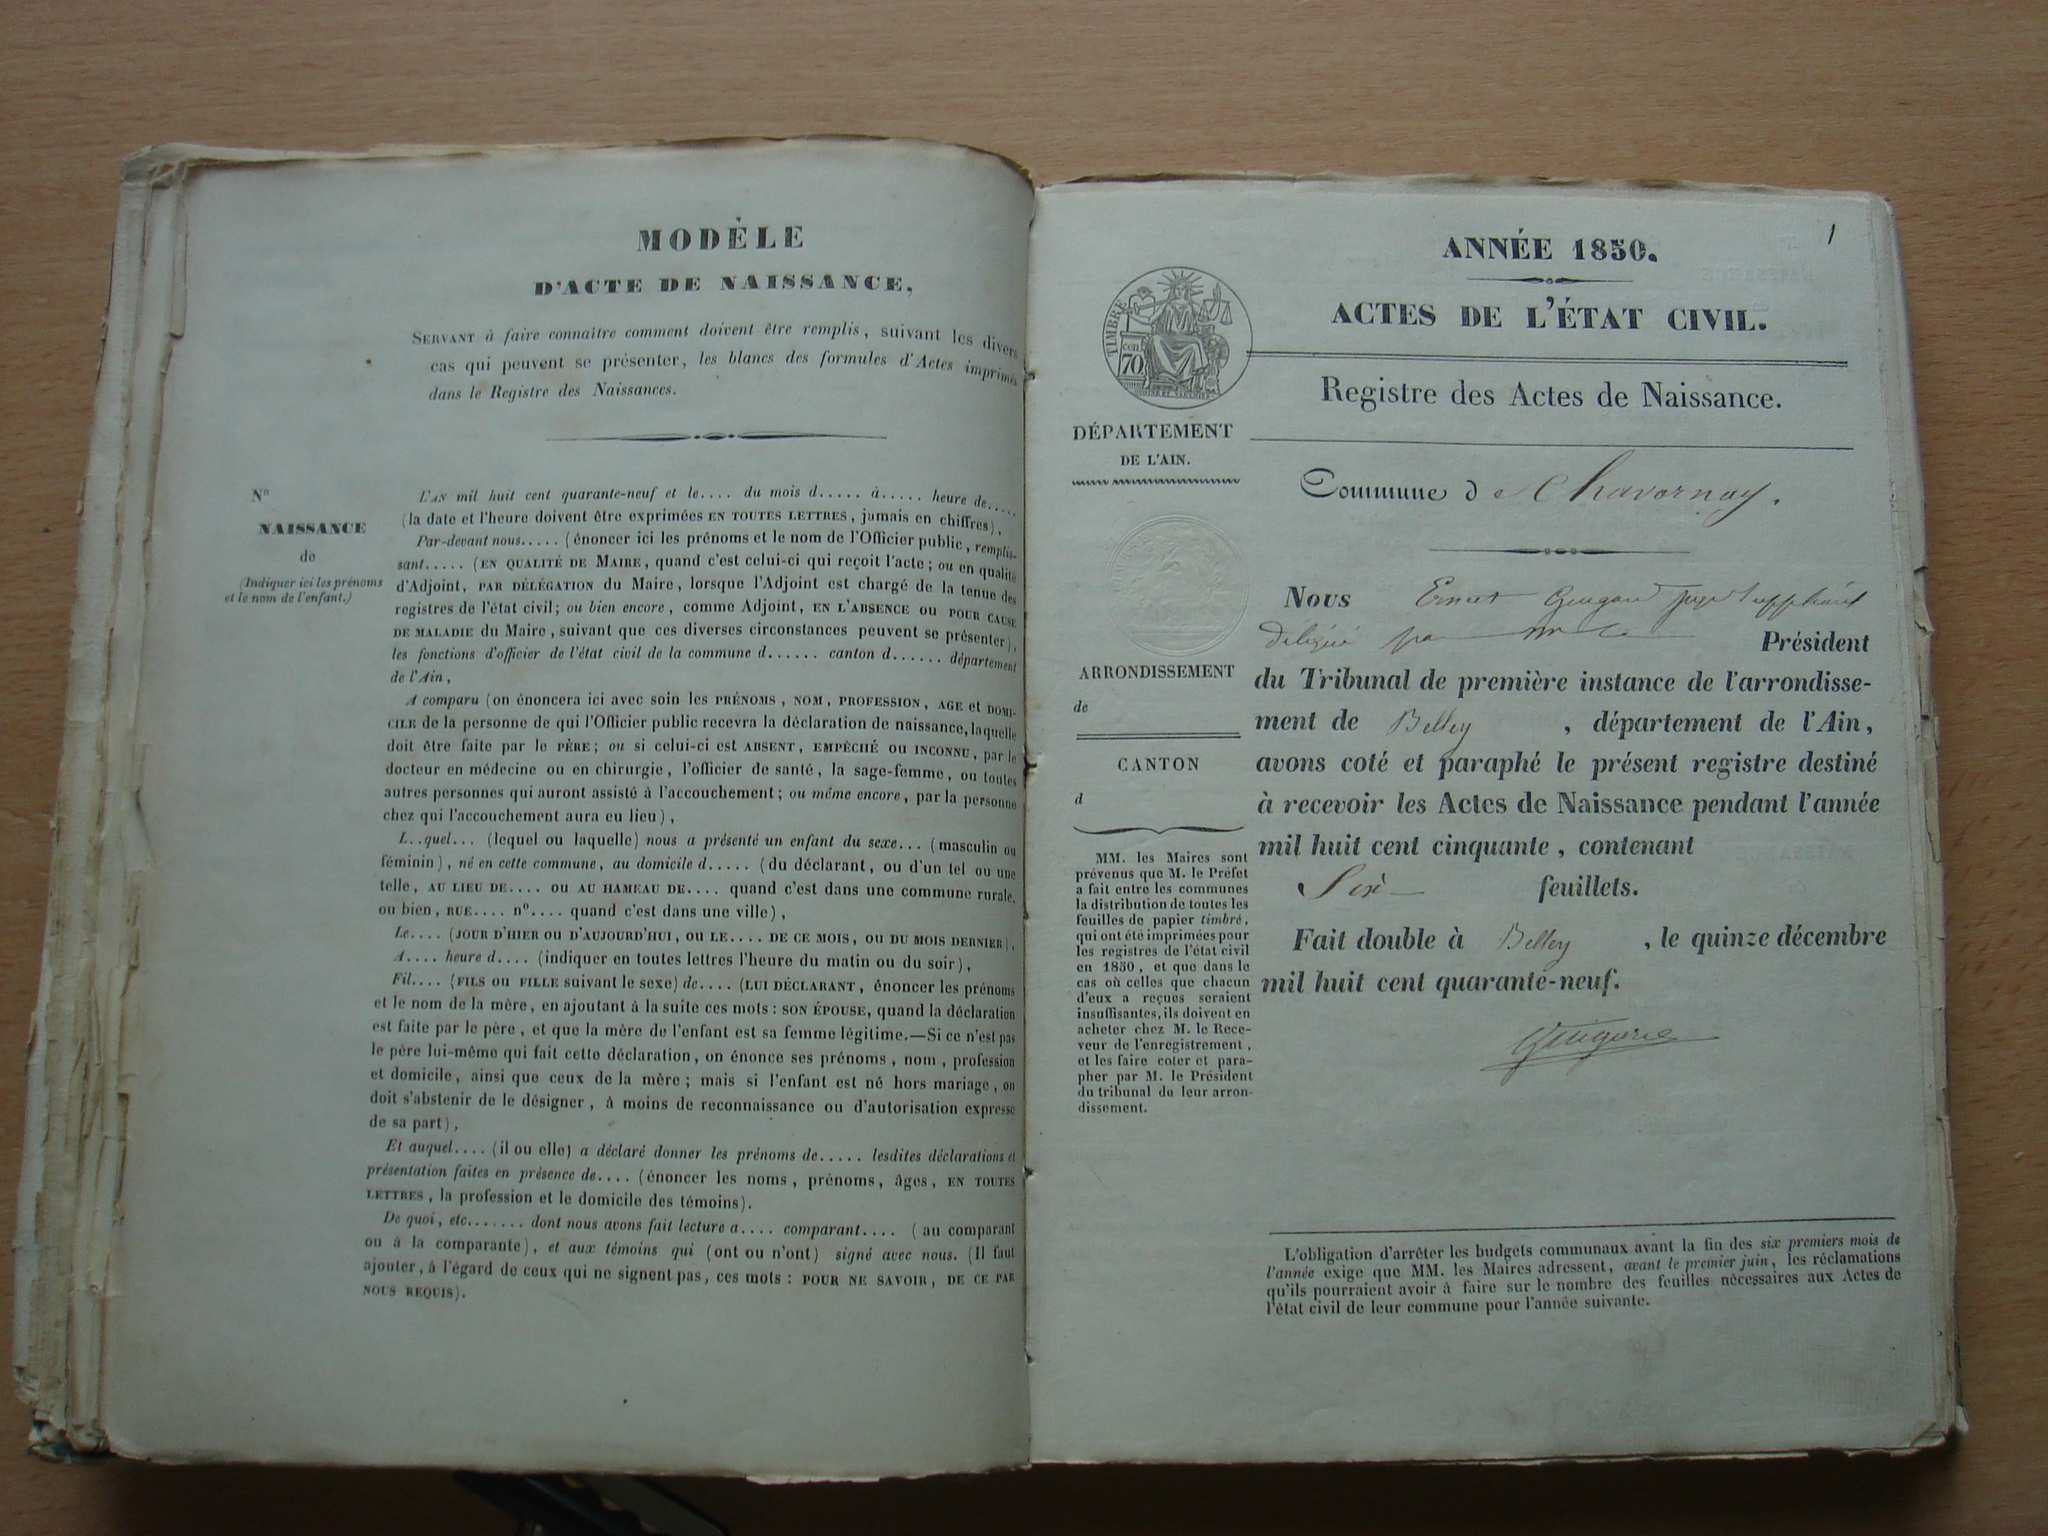 MODÈLE
D'ACTE DE NAISSANCE,
SERVANT à faire connaître comment doivent être remplis, suivant les divers
cas qui peuvent se présenter, les blancs des formules d'Actes imprimés
dans le Registre des Naissances.
N°
NAISSANCE
de
(Indiquer ici les prénoms
et le nom de l'enfant.)
L'AN mil huit cent quarante-neuf et le.... du mois d..... à..... heure de.....
(la date et l'heure doivent être exprimées EN TOUTES LETTRES, jamais en chiffres),
Par-devant nous..... (énoncer ici les prénoms et le nom de l'Officier public, remplis-
sant..... (EN QUALITÉ DE MAIRE, quand c'est celui-ci qui reçoit l'acte; ou en qualité
d'Adjoint, PAR DÉLÉGATION du Maire, lorsque l'Adjoint est chargé de la tenue des
registres de l'état civil; ou bien encore, comme Adjoint, EN L'ABSENCE OU POUR CAUSE
DE MALADIE du Maire, suivant que ces diverses circonstances peuvent se présenter),
les fonctions d'officier de l'état civil de la commune d...... canton d...... département
de l'Ain,
A comparu (on énoncera ici avec soin les PRÉNOMS, NOM, PROFESSION, AGE et DOMI-
CILE de la personne de qui l'Officier public recevra la déclaration de naissance, laquelle
doit être faite par le PÈRE; ou si celui-ci est ABSENT, EMPÊCHÉ OU INCONNU, par le
docteur en médecine ou en chirurgie, l'officier de santé, la sage-femme, ou toutes
autres personnes qui auront assisté à l'accouchement; ou même encore, par la personne
chez qui l'accouchement aura eu lieu),
L..quel... (lequel ou laquelle) nous a présenté un enfant du sexe... (masculin ou
féminin), né en cette commune, au domicile d..... (du déclarant, ou d'un tel ou une
telle, AU LIEU DE.... OU AU HAMEAU DE.... quand c'est dans une commune rurale,
ou bien, RUE.... n°.... quand c'est dans une ville),
Le.... (JOUR D'HIER OU D'AUJOURD'HUI, OU LE.... DE CE MOIS, OU DU MOIS DERNIER),
A.... heure d.... (indiquer en toutes lettres l'heure du matin ou du soir),
Fil.... (FILS ou FILLE suivant le sexe) de.... (LUI DÉCLARANT, énoncer les prénoms
et le nom de la mère, en ajoutant à la suite ces mots: SON ÉPOUSE, quand la déclaration
est faite par le père, et que la mère de l'enfant est sa femme légitime.—Si ce n'est pas
le père lui-même qui fait cette déclaration, on énonce ses prénoms, nom, profession
et domicile, ainsi que ceux de la mère; mais si l'enfant est né hors mariage, on
doit s'abstenir de le désigner, à moins de reconnaissance ou d'autorisation expresse
de sa part),
Et auquel.... (il ou elle) a déclaré donner les prénoms de..... lesdites déclarations et
présentation faites en présence de.... (énoncer les noms, prénoms, âges, EN TOUTES
LETTRES, la profession et le domicile des témoins).
De quoi, etc....... dont nous avons fait lecture a.... comparant.... (au comparant
ou à la comparante), et aux témoins qui (ont ou n'ont) signé avec nous. (Il faut
ajouter, à l'égard de ceux qui ne signent pas, ces mots: POUR NE SAVOIR, DE CE PAR
NOUS REQUIS).
1
ANNÉE 1850.
ACTES DE L'ÉTAT CIVIL.
TIMBRE
cen.
70
Registre des Actes de Naissance.
DÉPARTEMENT
DE L'AIN.
Commune de Chavornay.
ARRONDISSEMENT
de
CANTON
d
MM. les Maires sont
prévenus que M. le Préfet
a fait entre les communes
la distribution de toutes les
feuilles de papier timbré,
qui ont été imprimées pour
les registres de l'état civil
en 1850, et que dans le
cas où celles que chacun
d'eux a reçues seraient
insuffisantes, ils doivent en
acheter chez M. le Rece-
veur de l'enregistrement,
et les faire coter et para-
pher par M. le Président
du tribunal de leur arron-
dissement.
Nous Ernest juge suppléant
délégué par Mr le Président
du Tribunal de première instance de l'arrondisse-
ment de Belley, département de l'Ain,
avons coté et paraphé le présent registre destiné
à recevoir les Actes de Naissance pendant l'année
mil huit cent cinquante, contenant
Six feuillets.
Fait double à Belley, le quinze décembre
mil huit cent quarante-neuf.
L'obligation d'arrêter les budgets communaux avant la fin des six premiers mois de
l'année exige que MM. les Maires adressent, avant le premier juin, les réclamations
qu'ils pourraient avoir à faire sur le nombre des feuilles nécessaires aux Actes de
l'état civil de leur commune pour l'année suivante.